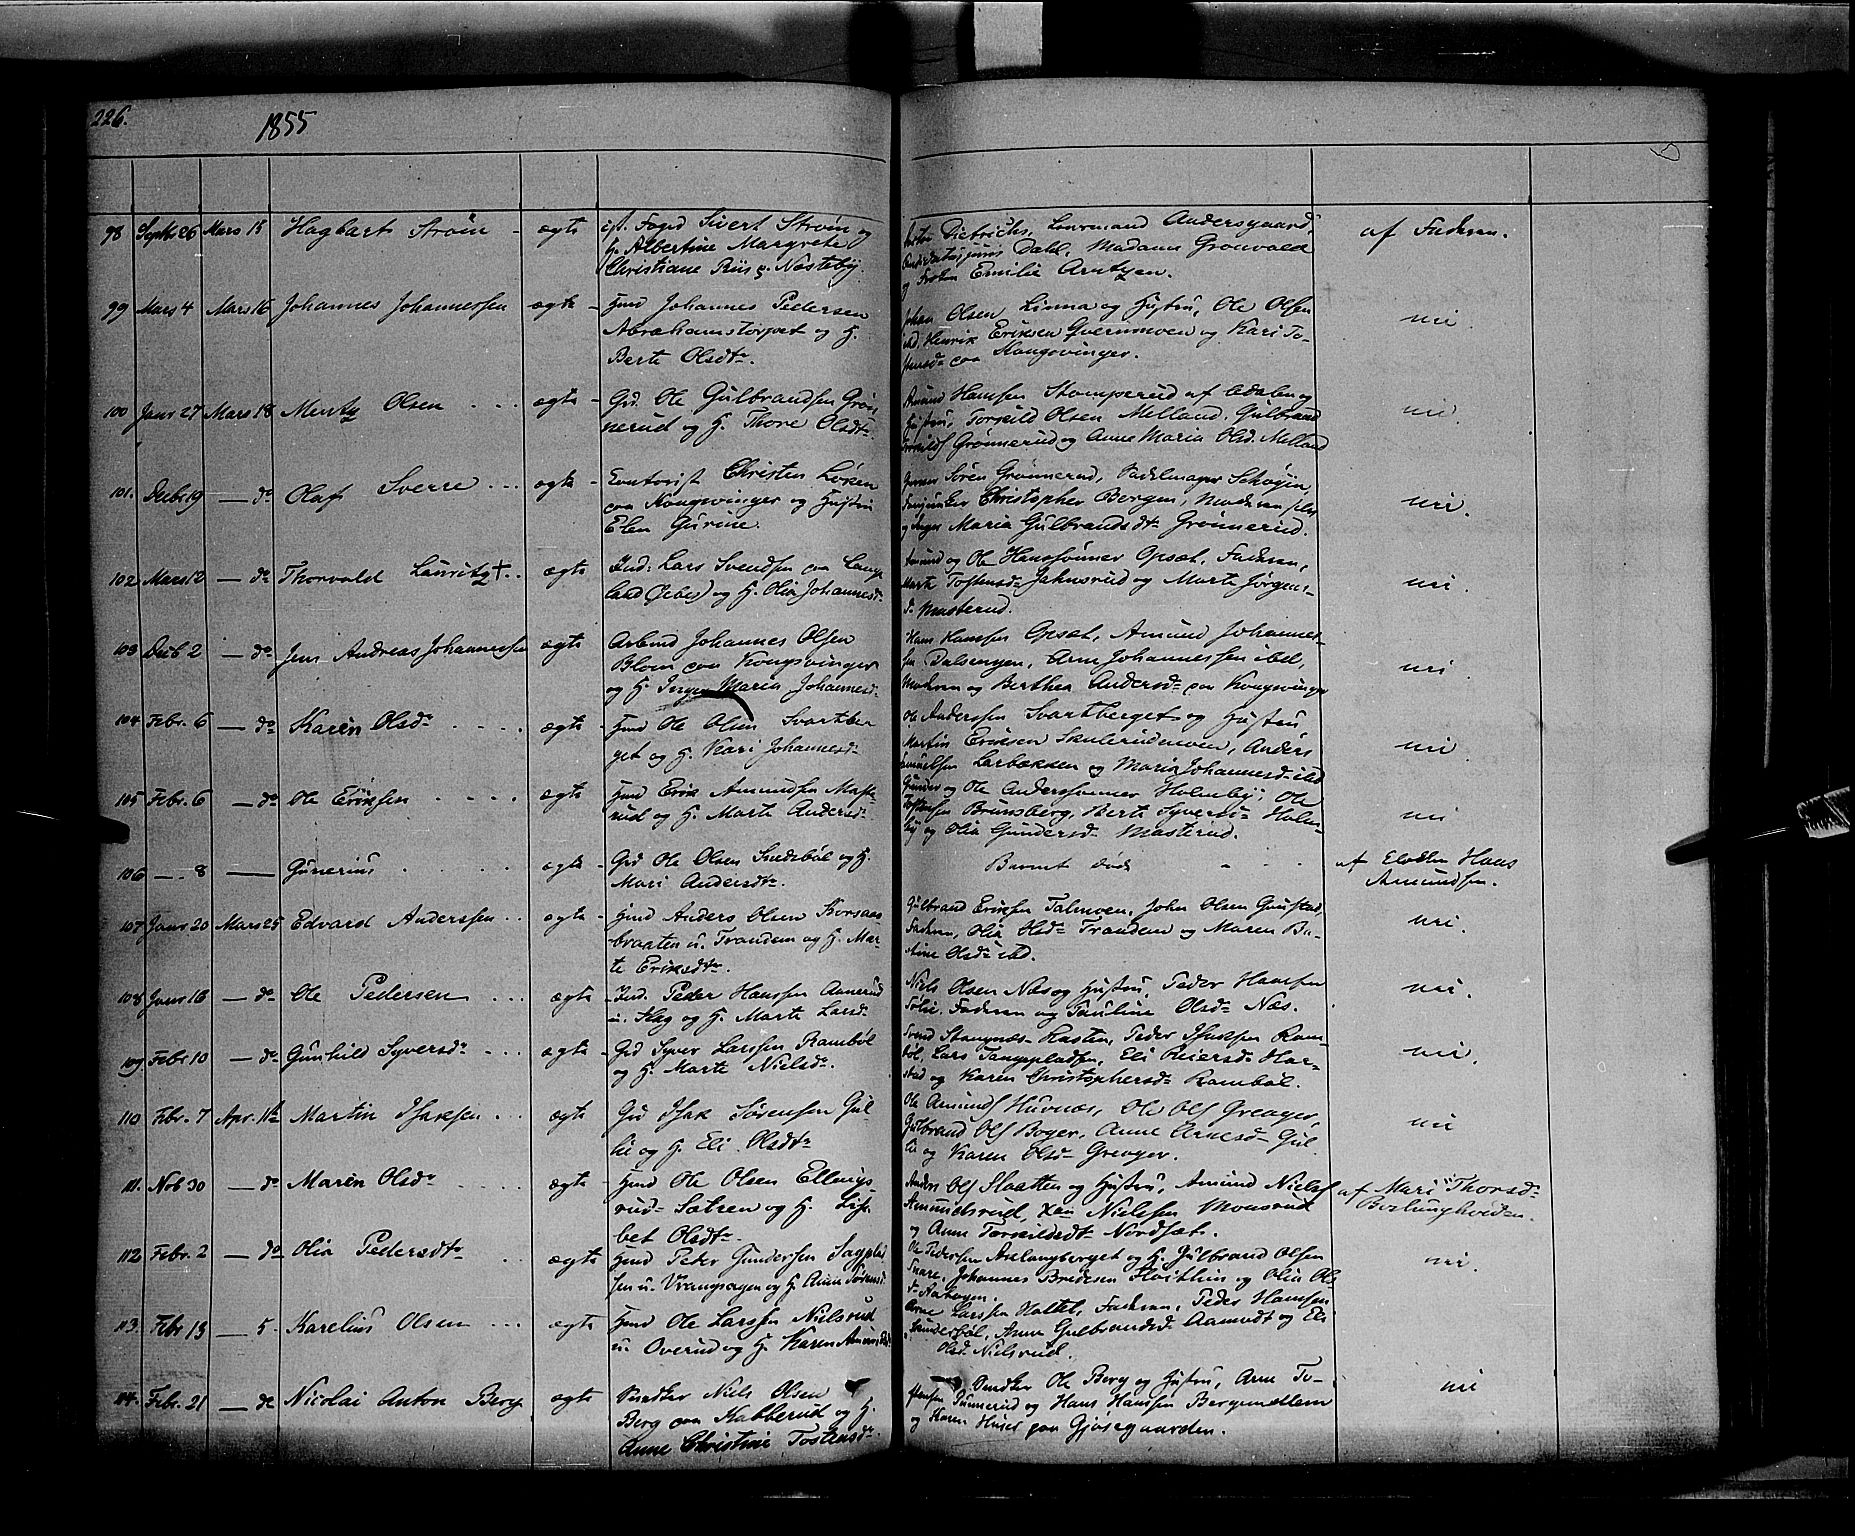 226.
1855
98 Septbr 26 Mars 15 Hagbart Strøm - ægte cst. Foged Sivert Strøm og
H. Albertine Margrethe
Christiane Riis p. Næsteby.
Dietrichs, Lawmand Andersgaard,
Dahl, Madame Grønvold
og Frøken Emilie Arntzen.
af Faderen.
99 Mars 4 Mars 16 Johannes Johannessen ægte - Hmd Johannes Pedersen
Abrahamstorpet og H.
Berte Olsdtr.
Johan Olsen Linna og Hustru, Ole Olsen
ibd, Henrik Eriksen Qvernmoen og Kari To-
stensdr paa Kongsvinger.
nei.
100 Janr 27 Mars 18 Mentz Olsen ... ægte - Grd. Ole Gulbrandsen Grøn-
nerud og H. Thore Olsdtr.
Amund Hansen Stomperud af Odalen og
Hustru, Torkild Olsen Melland, Gulbrand
Torkilds Grønnerud og Anne Maria Olsd. Melland
nei.
101. Decbr 19 — do Olaf Sverre ... ægte - Contorist Christen Løken
paa Kongsvinger og Hustru
Elen Gurine.
Søren Grønnerud, Sadelmager Schøjen
Christopher Bergen, Moderen selv
og Inger Maria Gulbrandsdtr Grønnerud.
nei.
102 Mars 12 — do Thorvald Lauritz +.. ægte Ind: Lars Svendsen paa Lang-
land (Seber) og H. Olia Johannesdr
Amund og Ole Hanssønner Opsæt, Faderen,
Marte Tostensdr Jahnsrud og Marte Jørgens-
dr Masterud.
nei.
103 Decb 2 — do Jens Andreas Johannessen ægte Arbmd Johannes Olsen
Blom paa Kongsvinger
og H. Inger Maria Johannesdr.
Hans Hansen Opsæt, Amund Johannes-
sen Dalsengen, Arne Johannessen ibd,
Moderen og Berthea Andersdr paa Kongsvinger
nei.
104 Febr. 6 — do Karen Olsdr .... ægte - Hmd Ole Olsen Svartber-
get og H. Kari Johannesdr
Ole Anderssen Svartberget og Hustru
Martin Eriksen Skulerudmoen, Anders
Larbæksen og Maria Johannesdr ibd
nei.
105 Febr. 6 — do Ole Eriksen .... ægte - Hmd Erik Amundsen Maste-
rud og H. Marte Andersdr
Gunder og Ole Anderssønner Holmby, Ole
Tostensen Brunsberg, Berte Syversdr Holm-
by og Olia Gundersdr Masterud.
nei
106 — . 8 — Gunerius ..... ægte - Grd Ole Olsen Smedsbøl og H.
Mari Andersdtr.
Barnet død
af Eleven Hans
Amundsen.
107 Janr 20 Mars 25 Edvard Anderssen .. ægte - Hmd Anders Olsen Korsaas-
braaten u. Trandem og H. Mar-
te Eriksdtr.
Gulbrand Eriksen Talmoen, John Olsen Gunstad,
Faderen, Olia Olsdr Trandem og Maren Ba-
Olsdr ibd.
nei.
108 Janr 16 — do Ole Pedersen ... ægte - Ind. Peder Hansen Aanerud
u. Hag og H. Marte Larsdr
Niels Olsen Næs og Hustru, Peder Hansen
Faderen og Pauline Olsdr Næs.
nei.
109 Febr. 10 — do Gunhild Syversdr ... ægte - Grd Syver Larssen Rambøl
og H. Marte Nielsdr.
Svend Stangnæs-Kasten, Peder Isaksen Ram-
bøl, Lars Tangepladsen, Eli Reiersdr Har-
stad og Karen Christophersdr Rambøl.
nei.
110 Febr. 7 Apr. 1ste Martin Isaksen ... ægte - Grd Isak Sørensen Gul-
lie og H. Eli Olsdtr
Ole Amunds Huvnæs, Ole Ols Greager,
Gulbrand Ols Boger, Anne Arnesdr Gul-
lie og Karen Olsdr Greager.
nei
111. Nob 30 — do Maren Olsdr .. ægte - Hmd Ole Olsen Ellings-
rud-Sætren og H. Lis-
bet Olsdtr.
Anders Ols Slaatten og Hustru, Amund Niels
Amundsrud, Nielsen Monsrud
og Anne Torkildsdtr Nordset.
af Mari Thorsdr
112 Febr. 2 — do Olia Pedersdtr ægte Hmd Peter Gundersen Sagplad-
sen u. Vrangsagen og H. Anne Sørensdr
Ole Pedersen Aslangberget og H. Gulbrand Olsen
Snare, Johannes Bredesen og Olia Ols-
dr Aabogen.
nei.
113. Febr 13 — 5. Karelius Olsen ... ægte Hmd Ole Larssen Nielsrud
u. Overud og H. Karen
Arne Larssen Holtet, Faderen, Peder Hansen
Gunderbøl, Anne Gulbrandsd Aamodt og Eli
Olsdr Nielsrud.
114. Febr. 21 — do Nicolai Anton Berg ægte Snedker Niels Olsen
Berg paa Kabberud og H.
Anne Christine Tostensdr.
Snedker Ole Berg og Hustru, Arne To-
stensen Sunnerud og Hans Hansen Bergmellem
og Karen Huser paa Gjøsegaarden.
nei